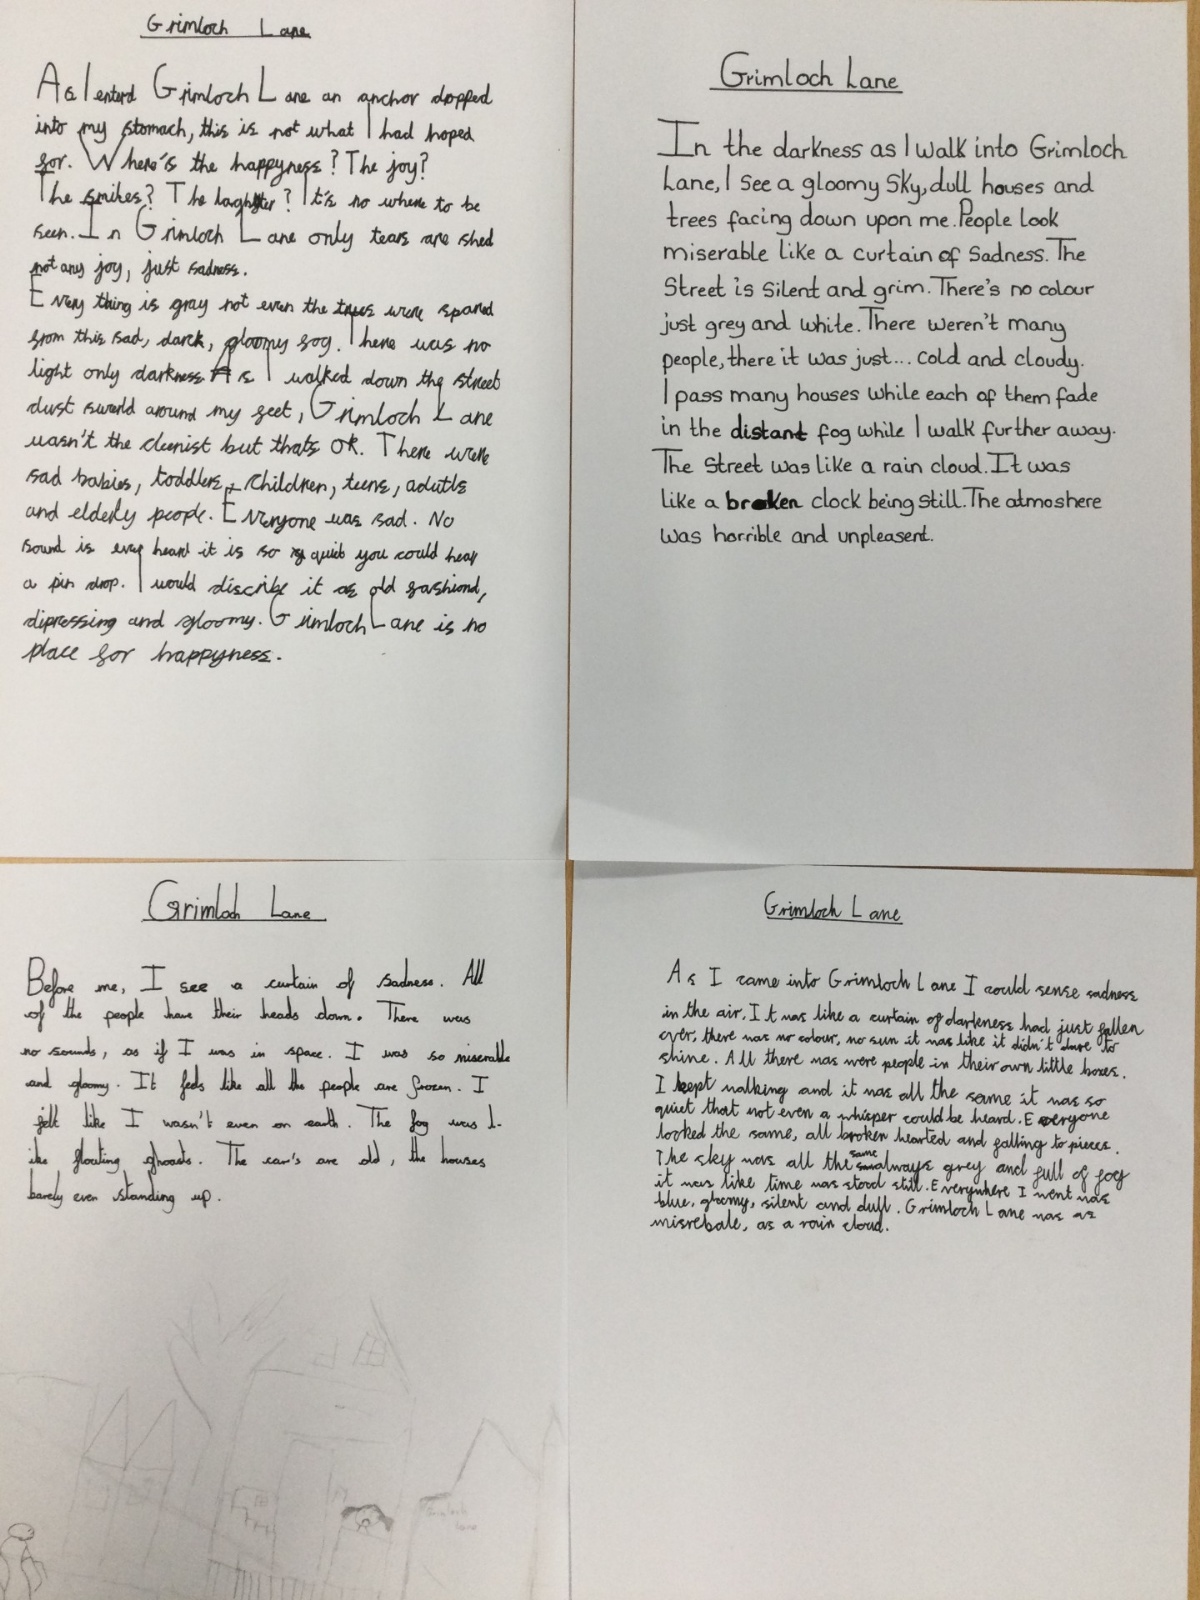 Grimloch Lane
As I enterd Grimloch Lane an anchor dopped
into my stomach, this is not what I had hoped
for. Where's the happyness? The joy?
The smiles? The laghter? It's no where to be
seen. In Grimloch Lane only tears are shed
not any joy, just sadness.
Every thing is gray not even the trees were spared
from this sad, darck, gloomy fog. There was no
light only darkness. As I walked down the street
dust swerld around my feet, Grimloch Lane
wasn't the cleenist but thats OK. There were
sad babies, toddlers, children, teens, adutls
and elderly people. Everyone was sad. No
sound is ever heard it is so quiet you could hear
a pin drop. I would discribe it as old fashiond,
dipressing and gloomy. Grimloch Lane is no
place for happyness.
Grimloch Lane
In the darkness as I walk into Grimloch
Lane, I see a gloomy sky, dull houses and
trees facing down upon me. People look
miserable like a curtain of sadness. The
Street is silent and grim. There's no colour
just grey and white. There weren't many
people, there it was just... cold and cloudy.
I pass many houses while each of them fade
in the distant fog while I walk further away.
The street was like a rain cloud. It was
like a broken clock being still. The atmoshere
was horrible and unpleasent.
Grimloch Lane
Before me, I see a curtain of sadness. All
of the people have their heads down. There was
no sounds, as if I was in space. I was so miserable
and gloomy. It feels like all the people are frozen. I
felt like I wasn't even on earth. The fog was l-
ike floating ghoasts. The car's are old, the houses
barely even standing up.
Grimloch Lane
As I came into Grimloch Lane I could sense sadness
in the air. It was like a curtain of darkness had just fallen
over, there was no colour, no sun it was like it didn't dare to
shine. All there was were people in their own little boxes.
I kept walking and it was all the same it was so
quiet that not even a whisper could be heard. Everyone
looked the same, all broken hearted and falling to pieces.
The sky was all the same always grey and full of fog
it was like time was stood still. Everywhere I went was
blue, gloomy, silent and dull. Grimloch Lane was as
misrebale, as a rain cloud.